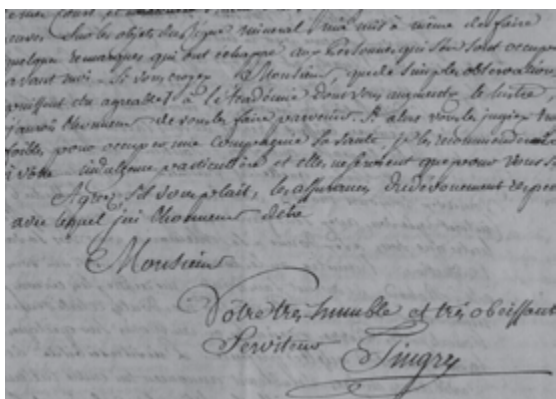 causer sur les objets du Règne mineral m'a mis à même de faire
quelque remarques qui ont échappé aux Personnes qui s'en sont occupé
avant moi. Si vous croyez Monsieur, que de simples observations
puissent être agreable à l'Académie dont vous augmentez le lustre,
j'aurois l'honneur de vous les faire parvenir. Si alors vous les jugiez
foibles pour occuper une Compagnie sa je les recommenderois
à votre indulgence particuliere et elles ne seroient que pour vous
Agréez, s'il vous plait, les assurances du dévouement
avec lequel j'ai l'honneur d'etre
Monsieur
Votre très humble et très obeissant
Serviteur Tingry